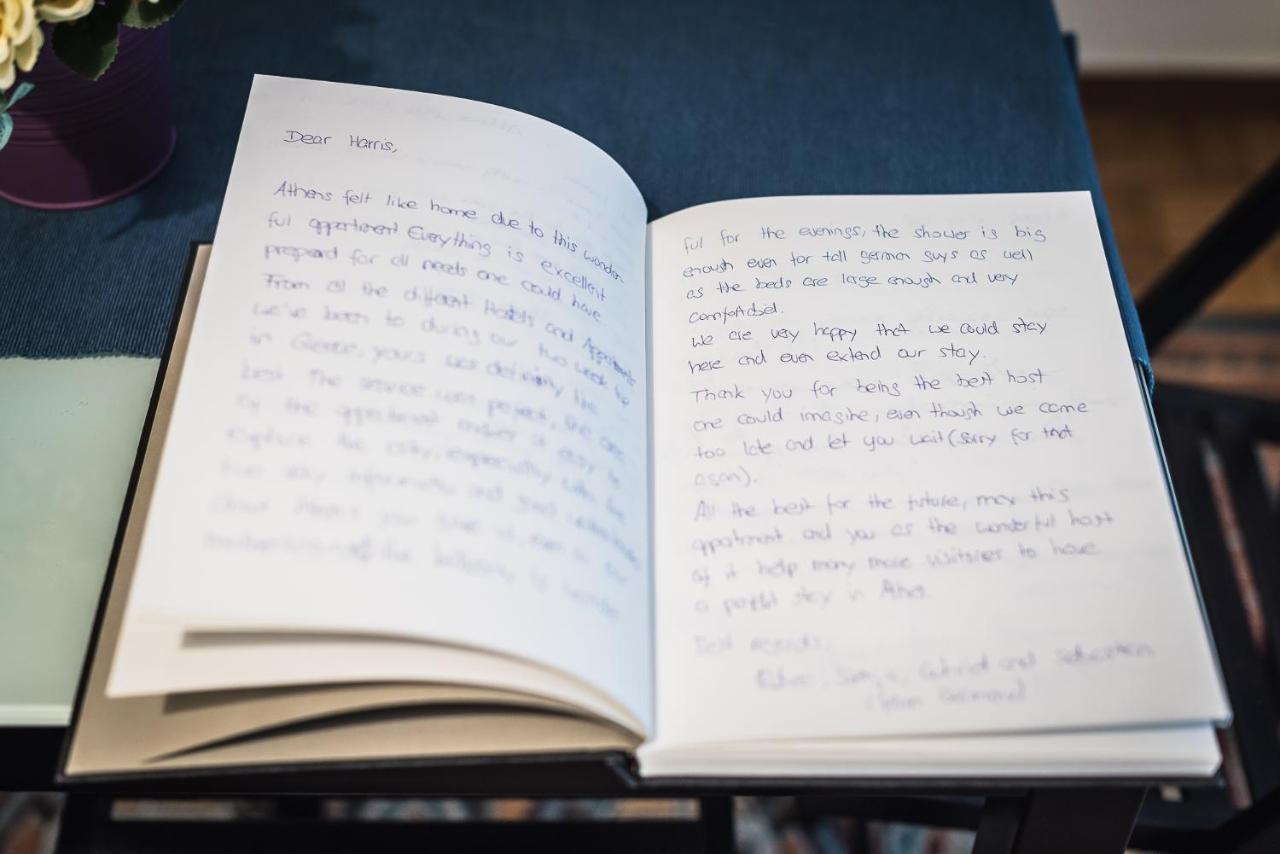 Dear Harris,
Athens felt like home due to this wonder
ful appartment Everything is excellent
prepared for all needs one could have
From all the different Hotels and Appartments
we've been to during our two week trip
in Greece, yours was definitely the
best. The service was perfect, the
of the appartment makes it easy to
explore the city, especially with the
and good
about Athens you gave us, even
ful for the evenings, the shower is big
enough even for tall german guys as well
as the beds are large enough and very
comfortabel.
We are very happy that we could stay
here and even extend our stay.
Thank you for being the best host
one could imagine, even though we came
too late and let you wait (sorry for that
again).
All the best for the future, may this
appartment and you as the wonderful host
of it help many more visitores to have
a perfekt stay in Athen.
Best regards,
and Sebastian